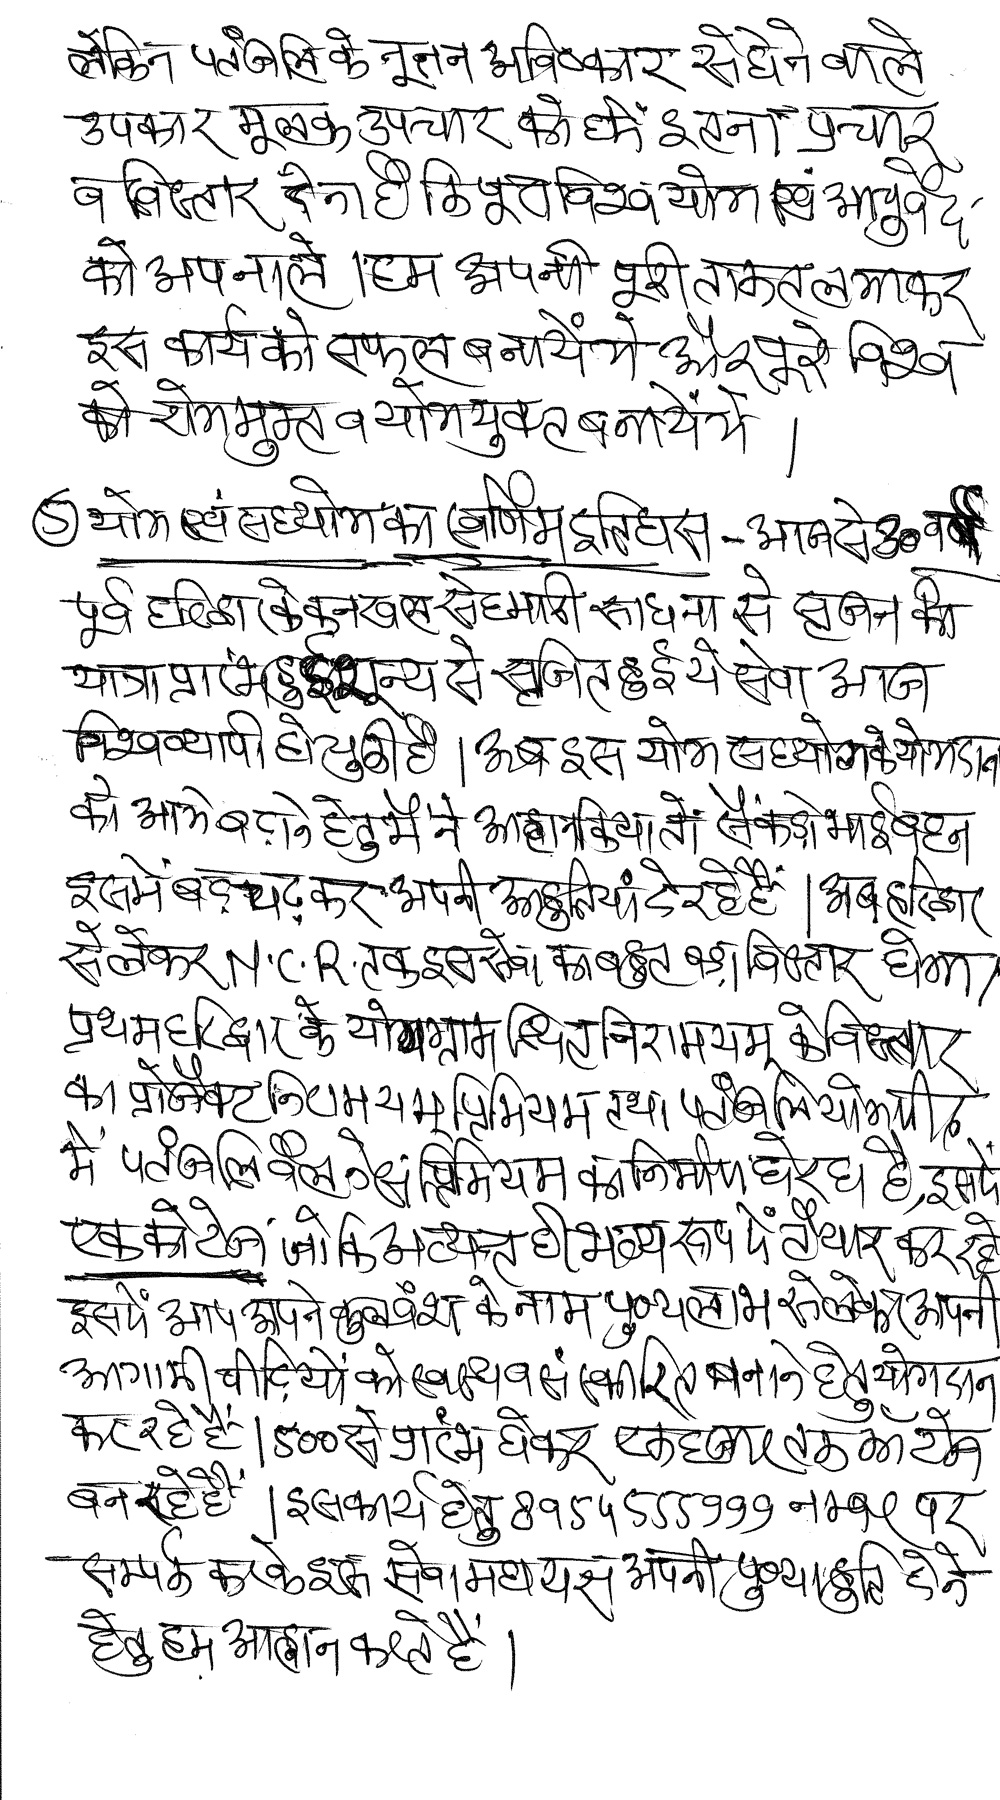 लेकिन पतंजलि के नूतन अविष्कार से होने वाले
उपकार मूलक उपचार को हमें इतना प्रचार
व विस्तार देना है कि पूरा विश्व योग एवं आयुर्वेद
को अपनाले । हम अपनी पूरी ताकत लगाकर
इस कार्य को सफल बनायेंगे और पूरे विश्व
को रोगमुक्त व योगयुक्त बनायेंगे ।
⑤ योग एवं सहयोग का स्वर्णिम इतिहास - आज से 30 वर्ष
पूर्व हरिद्वार के कनखल से हमारी साधना से सृजन की
यात्रा प्रारंभ हुई शून्य से सृजित हुई ये सेवा आज
विश्वव्यापी हो चुकी है । अब इस योग सहयोग के योगदान
को आगे बढ़ाने हेतु मैंने आह्वान किया तो सैंकड़ो भाई बहन
इसमें बढ़ चढ़ कर अपनी आहुतियां दे रहे हैं । अब हरिद्वार
से लेकर N.C.R. तक इस सेवा का बहुत बड़ा विस्तार होगा ।
प्रथम हरिद्वार के योगग्राम स्थित निरामयम् के विस्तार
का प्रोजैक्ट निरामयम् प्रिमियम तथा पतंजलि योगपीठ
में पतंजलि वैलनेस प्रिमियम का निर्माण हो रहा है, इसमें
एक कोटेज जो कि अत्यन्त ही भव्य रूप में तैयार कर रहे
इसमें आप अपने कुलवंश के नाम पुण्यलाभ से लेकर अपनी
आगामी पीढ़ियों को स्वस्थ व संस्कारित बनाने हेतु योगदान
कर रहे हैं । 500 से प्रारंभ होकर एक हजार तक कॉटेज
बन रहे हैं । इस कार्य हेतु 8954555999 नम्बर पर
सम्पर्क करके इस सेवा में अपनी पुण्याहुति देने
हेतु हम आह्वान करते हैं ।